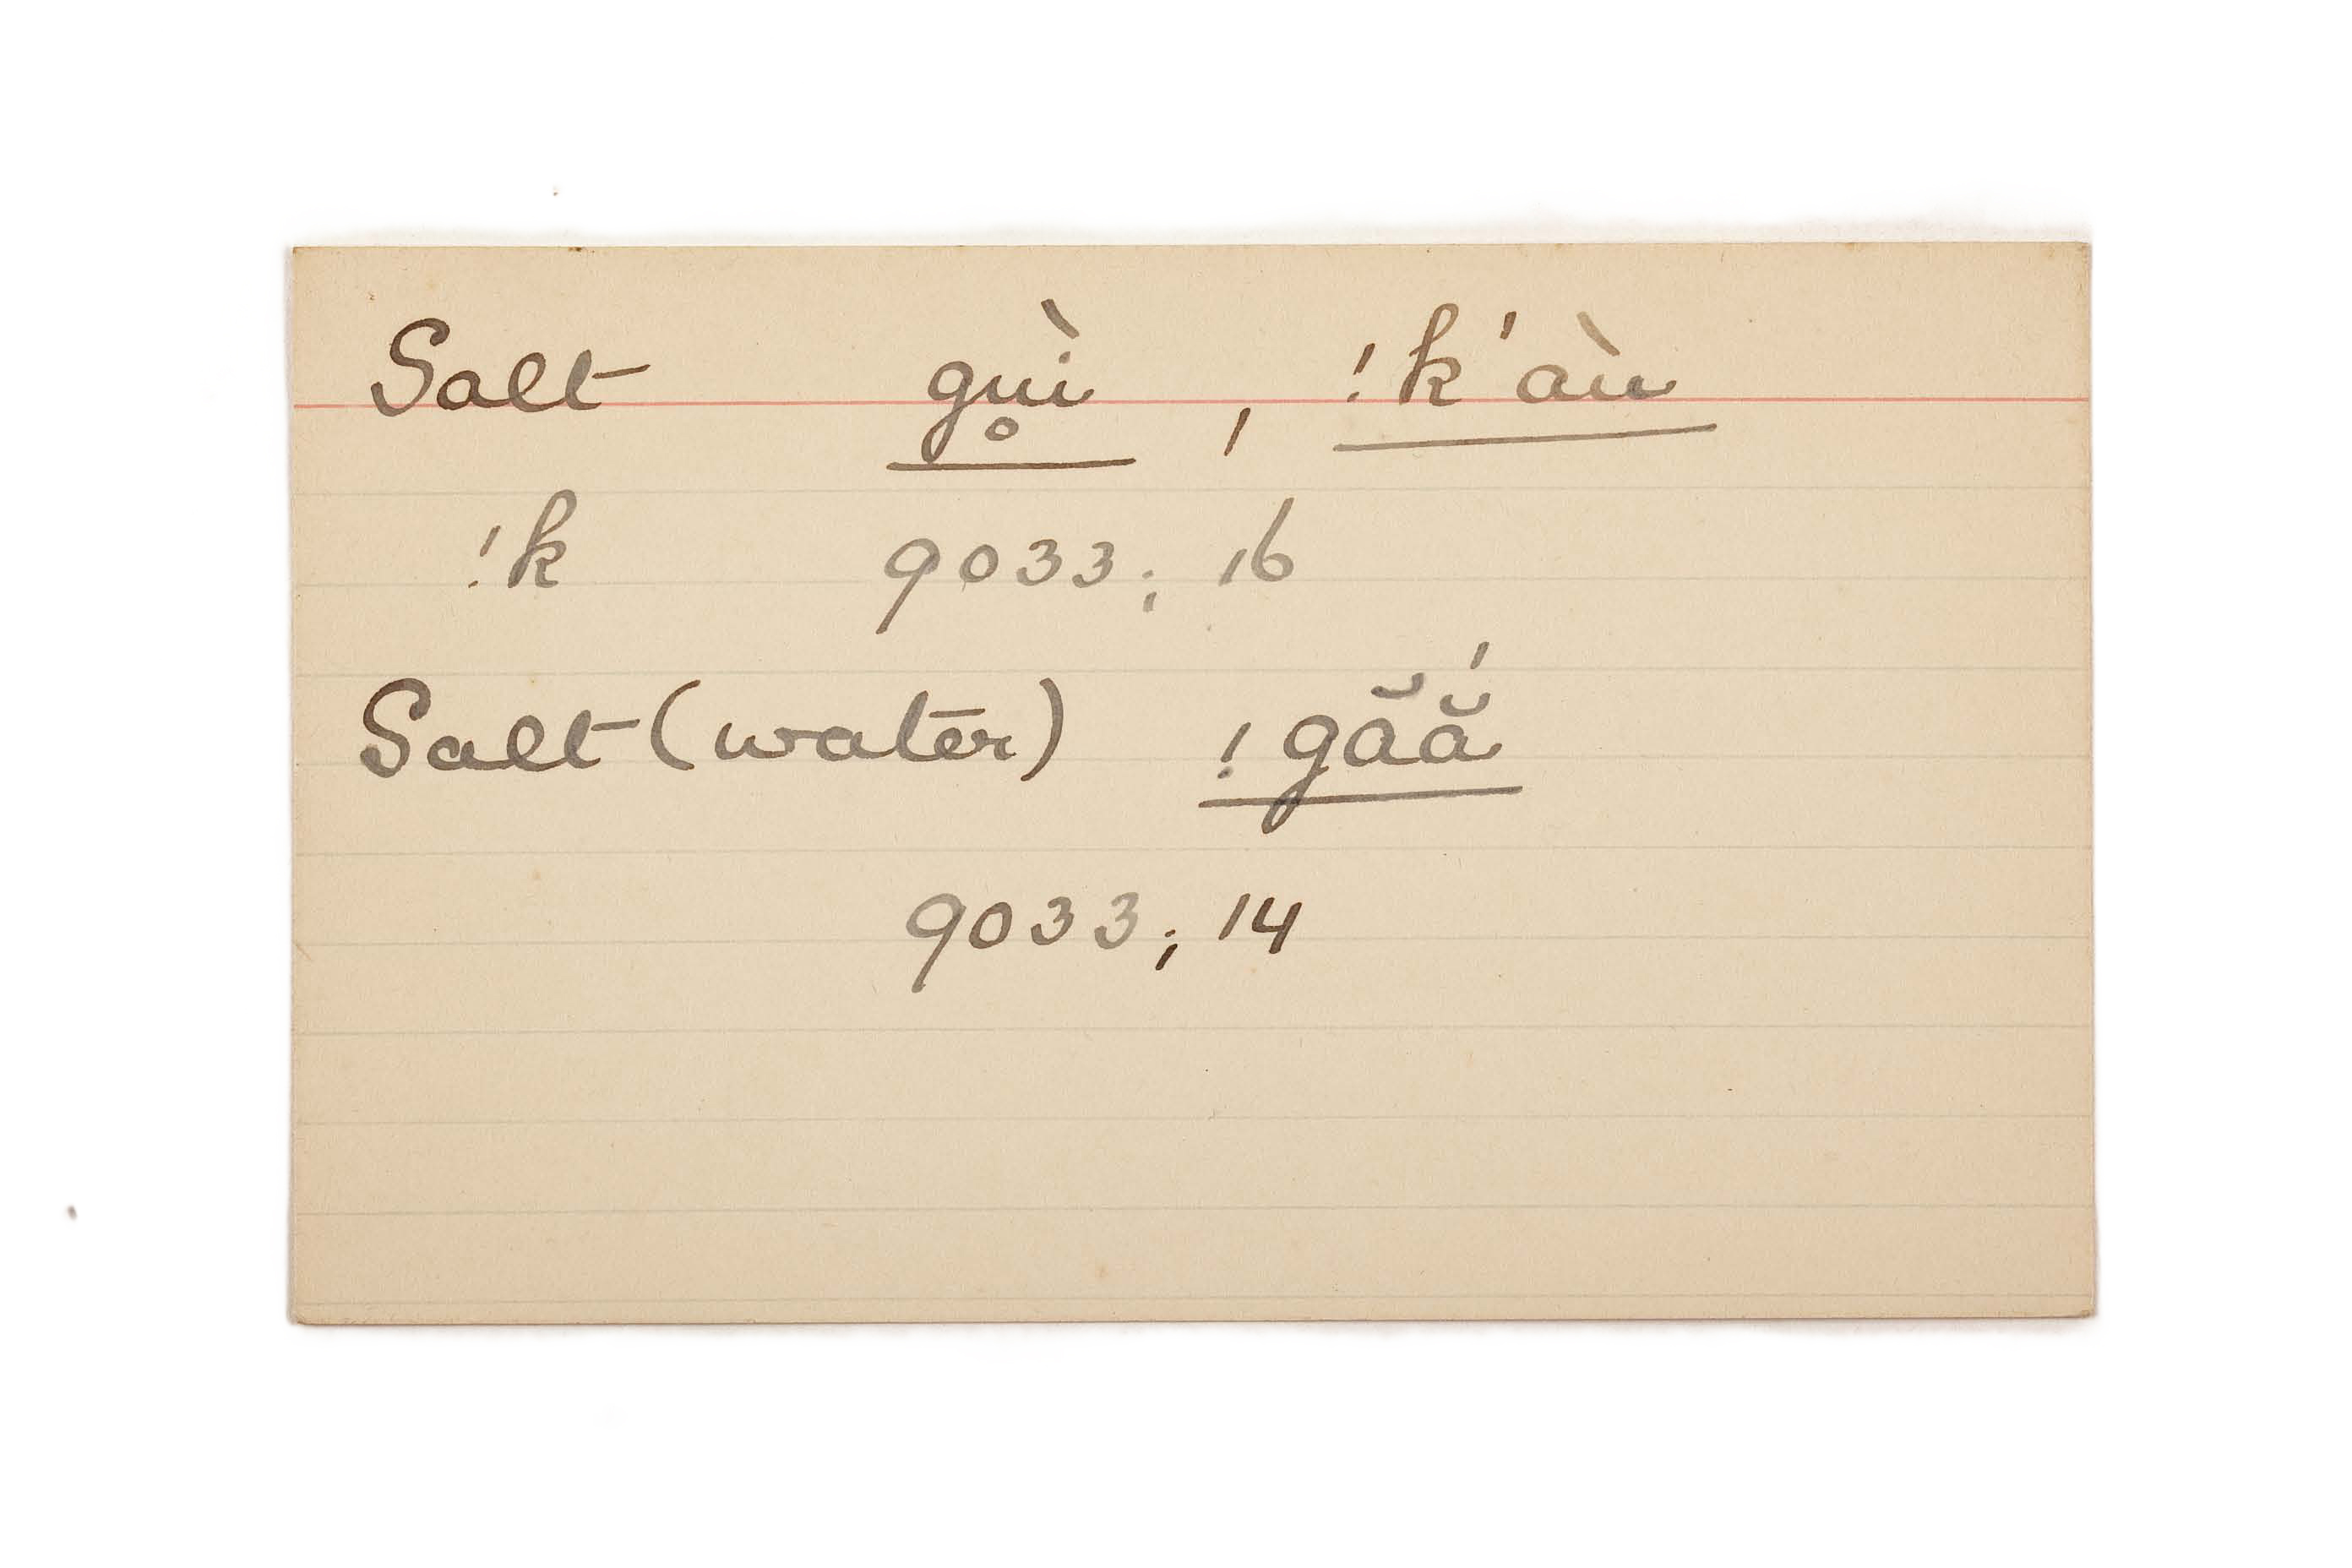 Salt gu̥ì , !k'àu
!k 9033; 16
Salt (water) !găắ
9033; 14